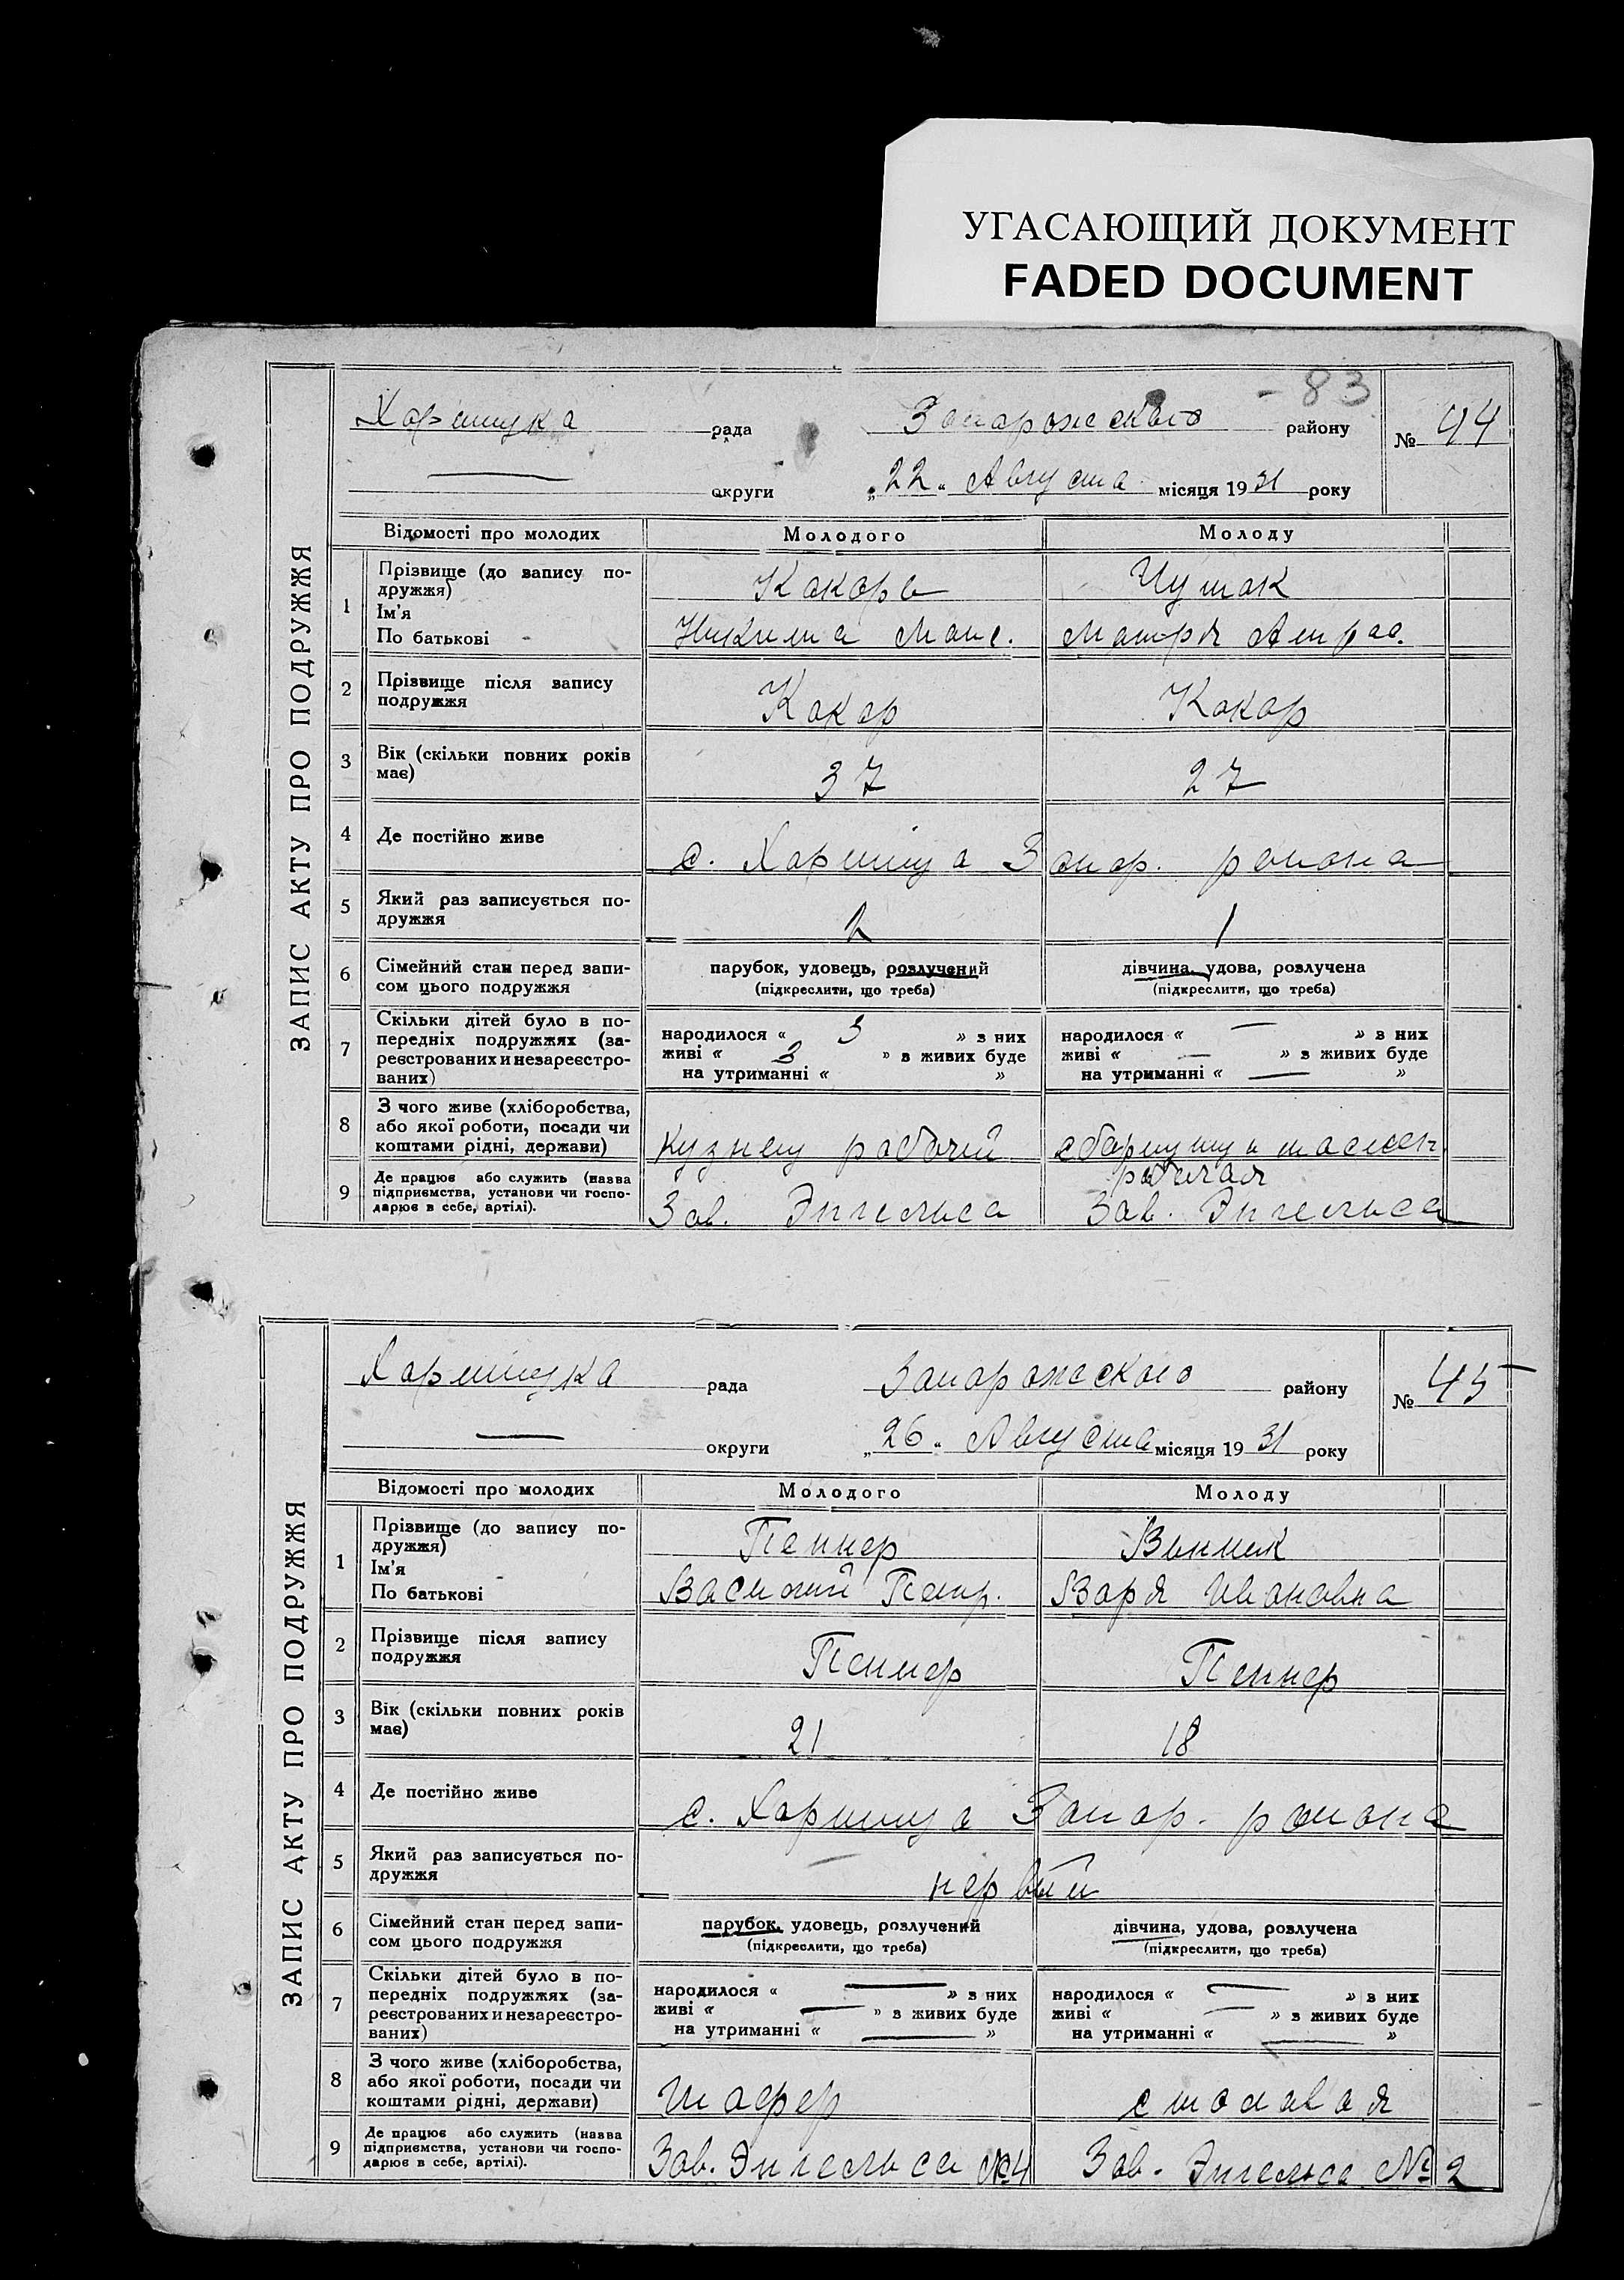 УГАСАЮЩИЙ ДОКУМЕНТ
FADED DOCUMENT
- 83
ЗАПИС АКТУ ПРО ПОДРУЖЖЯ
рада Запарожского району № 44
округи „22„ Августа місяця 1931 року
Відомості про молодих Молодого Молоду
1 Прізвище (до запису по-
дружжя)
Ім'я
По батькові
Чумак
Никита
2 Прізвище після запису
подружжя
Кокар Кокар
3 Вік (скільки повних років
має)
37 27
4 Де постійно живе
с. Хортица Запор. района
5 Який раз записується по-
дружжя
2 1
6 Сімейний стан перед запи-
сом цього подружжя
парубок, удовець, розлучений
(підкреслити, що треба)
дівчина, удова, розлучена
(підкреслити, що треба)
7 Скільки дітей було в по-
передніх подружжях (за-
реєстрованих и незареєстро-
ваних)
народилося « 3 » з них
живі « 3 » з живих буде
на утриманні « »
народилося « — » з них
живі « — » з живих буде
на утриманні « — »
8 З чого живе (хліборобства,
або якої роботи, посади чи
коштами рідні, держави)
кузнец рабочий
рабочая
9 Де працює або служить (назва
підприємства, установи чи госпо-
дарює в себе, артілі).
Зав. Энгельса Зав. Энгельса
ЗАПИС АКТУ ПРО ПОДРУЖЖЯ
рада Запорожского району № 45
округи „26„ Августа місяця 1931 року
Відомості про молодих Молодого Молоду
1 Прізвище (до запису по-
дружжя)
Ім'я
По батькові
Пеннер
Василий Петр. Варя Ивановна
2 Прізвище після запису
подружжя
Пеннер Пеннер
3 Вік (скільки повних років
має)
21 18
4 Де постійно живе
с. Хортица Запор. района
5 Який раз записується по-
дружжя
первый
6 Сімейний стан перед запи-
сом цього подружжя
парубок, удовець, розлучений
(підкреслити, що треба)
дівчина, удова, розлучена
(підкреслити, що треба)
7 Скільки дітей було в по-
передніх подружжях (за-
реєстрованих и незареєстро-
ваних)
народилося « — » з них
живі « — » з живих буде
на утриманні « — »
народилося « — » з них
живі « — » з живих буде
на утриманні « — »
8 З чого живе (хліборобства,
або якої роботи, посади чи
коштами рідні, держави)
шофер столовая
9 Де працює або служить (назва
підприємства, установи чи госпо-
дарює в себе, артілі).
Зав. Энгельса №4 Зав. Энгельса № 2